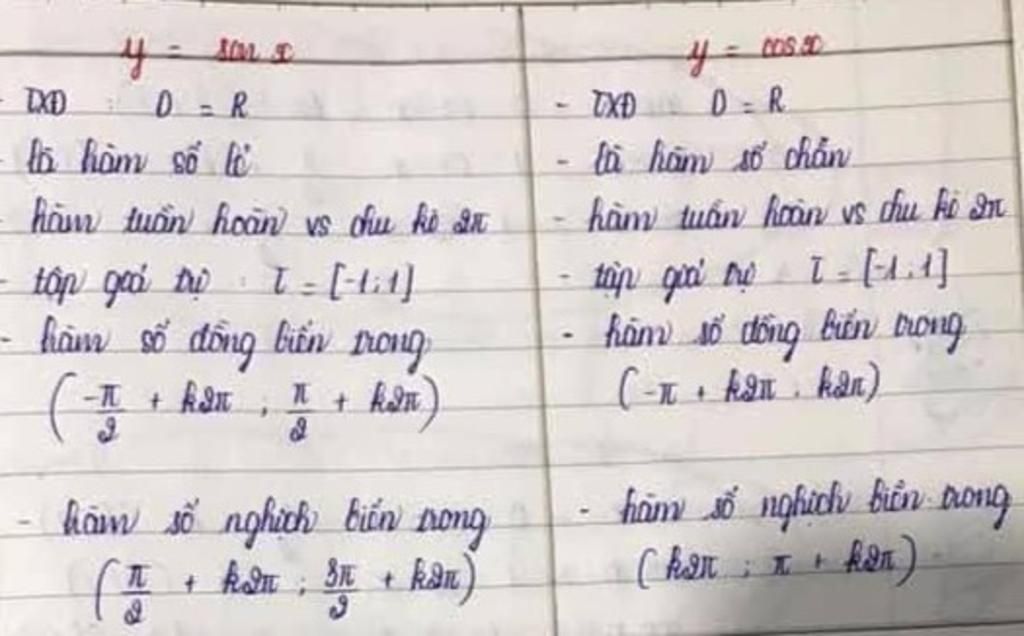 y = sin x
- TXĐ : D = R
- là hàm số lẻ
- hàm tuần hoàn vs chu kì 2π
- tập giá trị : T = [-1;1]
- hàm số đồng biến trong
(-π/2 + k2π ; π/2 + k2π)
- hàm số nghịch biến trong
(π/2 + k2π ; 3π/2 + k2π)
y = cos x
- TXĐ D = R
- là hàm số chẵn
- hàm tuần hoàn vs chu kì 2π
- tập giá trị T = [-1;1]
- hàm số đồng biến trong
(-π + k2π ; k2π)
- hàm số nghịch biến trong
(k2π ; π + k2π)